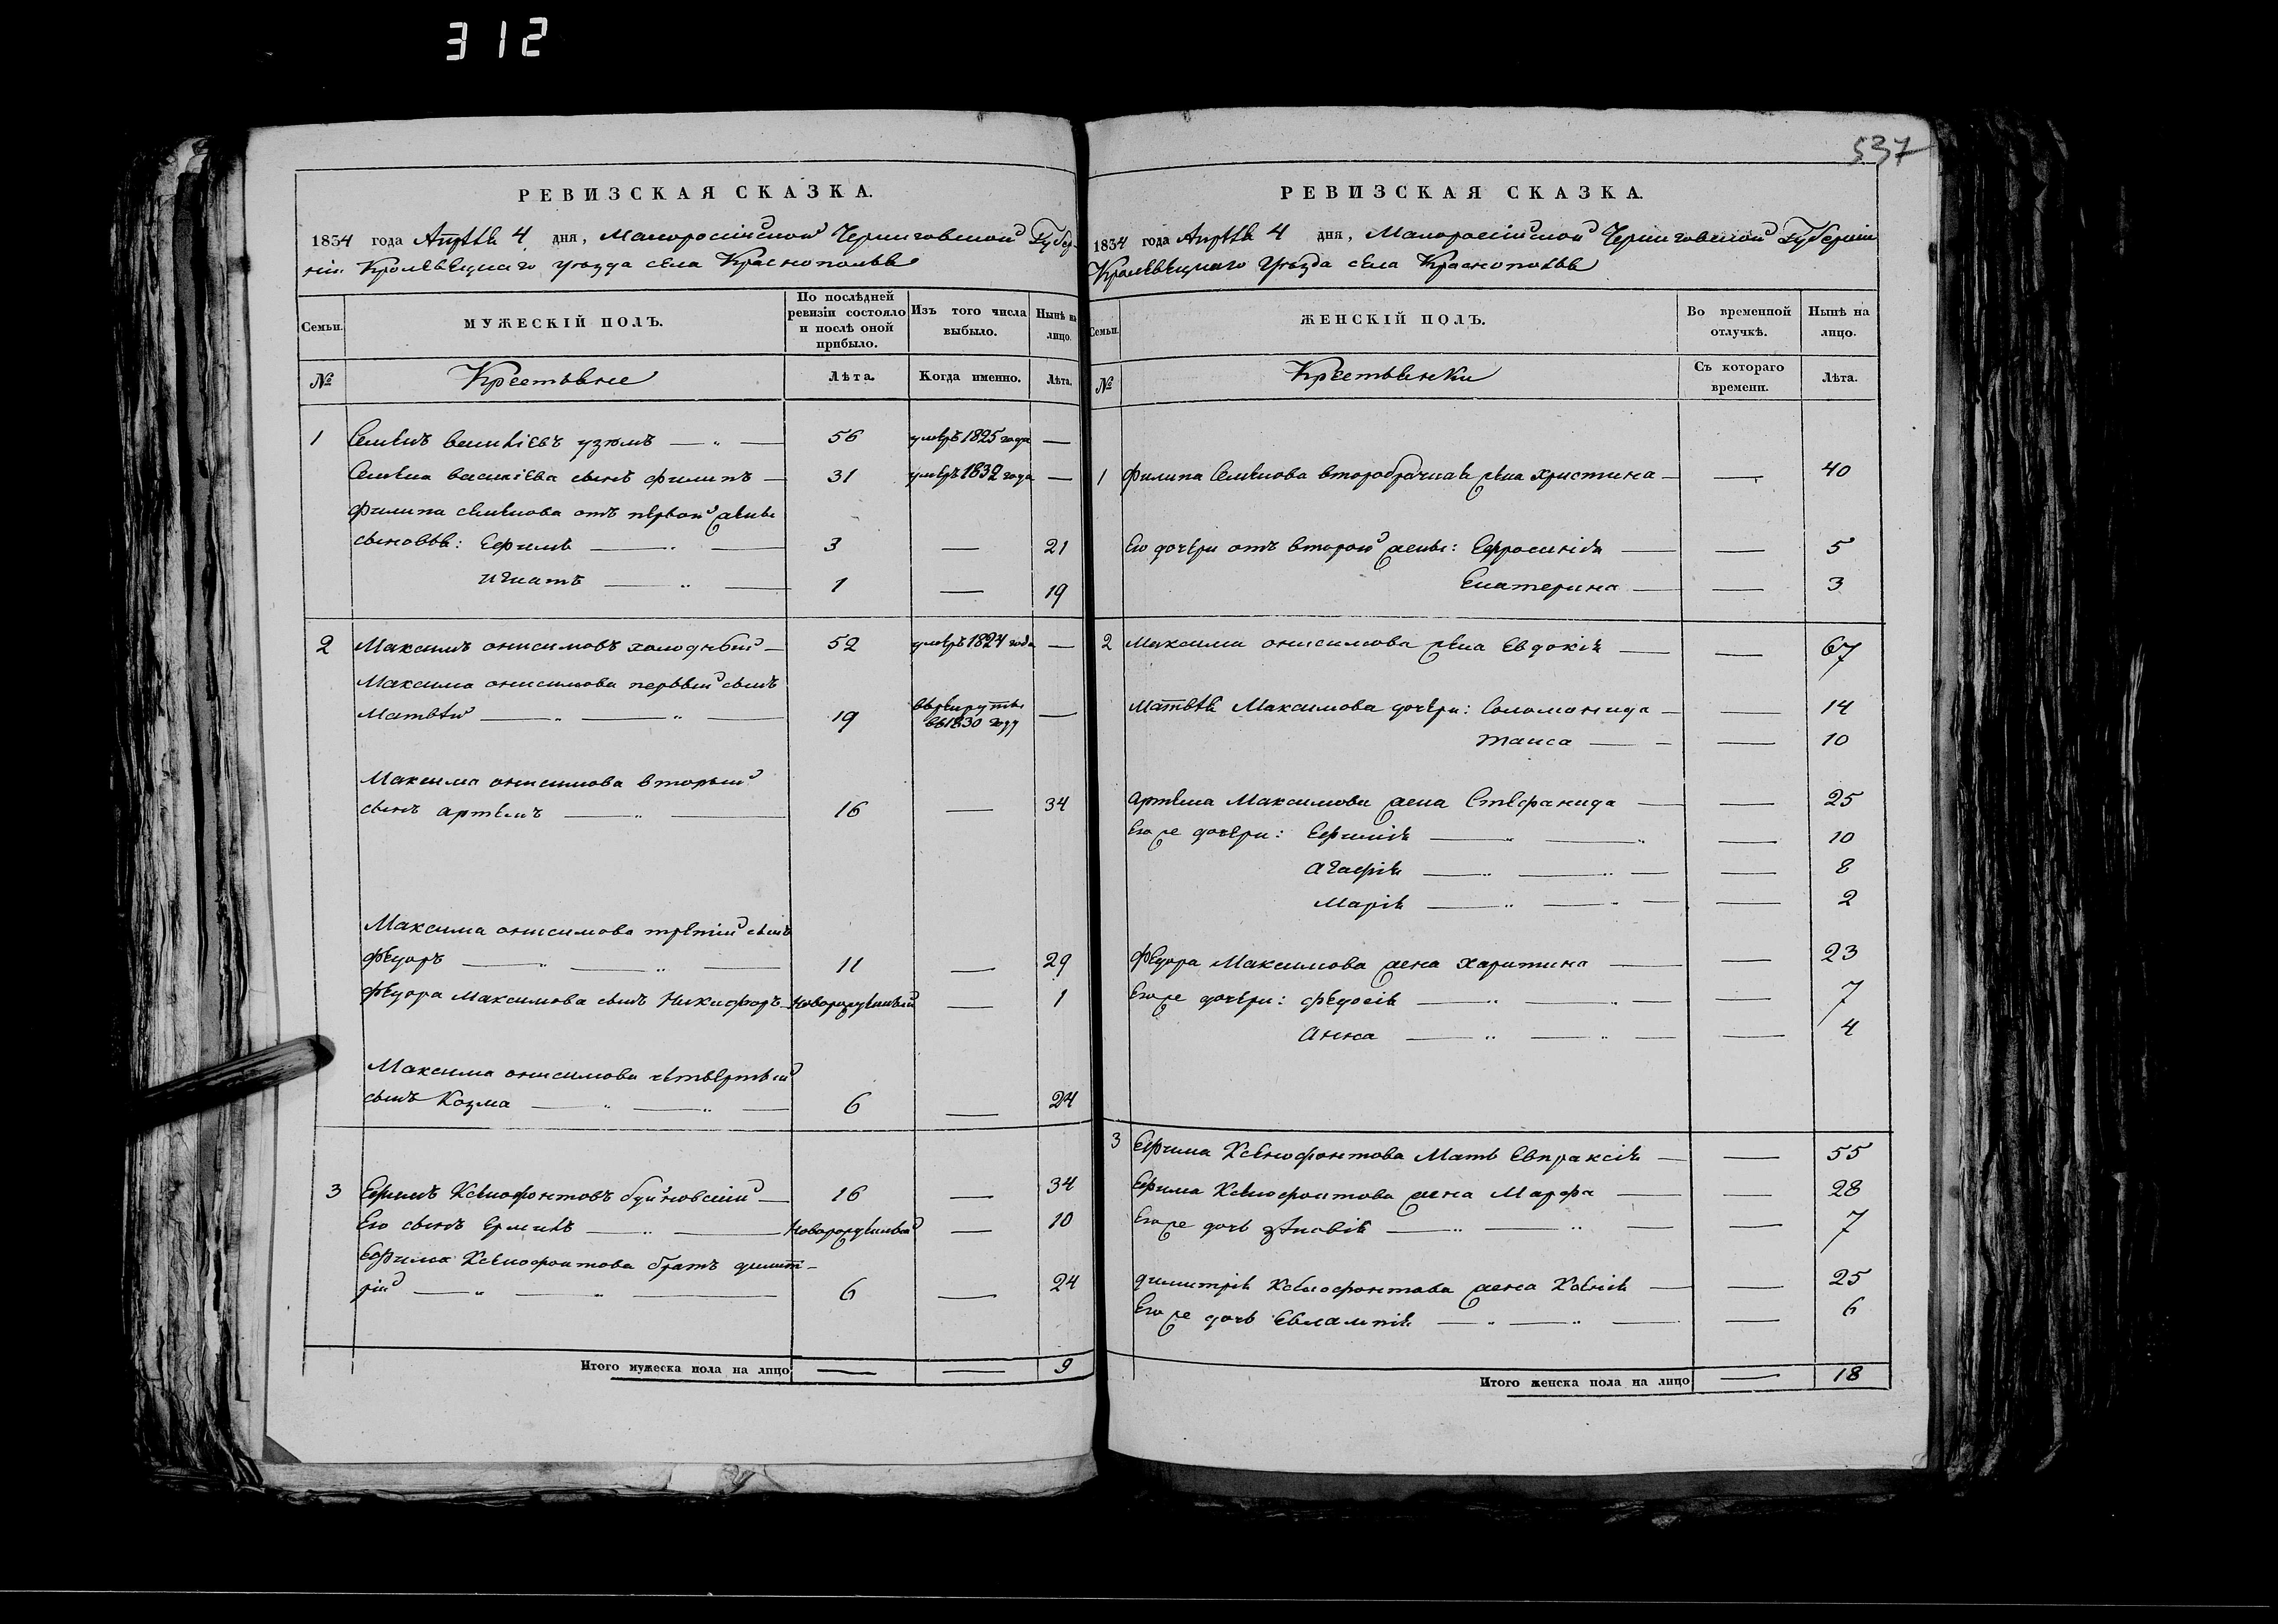 312
537
РЕВИЗСКАЯ СКАЗКА.
1834 года Апрѣля 4 дня, Малоросійской Черниговской Губер-
ніи Кролевецкаго уѣзда села Краснополья
Семьи.
МУЖЕСКІЙ ПОЛЪ.
По послѣдней ревизіи состояло и послѣ оной прибыло.
Изъ того числа выбыло.
Нынѣ на лицо.
№
Крестьяне
Лѣта.
Когда именно.
Лѣта.
1 Семенъ василіевъ узюмъ — „ — 56 умеръ 1825 года —
Семена василіева сынъ филипъ — 31 умеръ 1832 года —
филипа семенова отъ первой жены
сыновья: Ефимъ — „ — 3 — 21
игнатъ — „ — 1 — 19
2 Максимъ онисимовъ холодный — 52 умеръ 1824 года —
Максима онисимова первый сынъ
Матвѣй — „ — „ — 19 въ рекруты въ 1830 году —
Максима онисимова вторый
сынъ артемъ — „ — 16 — 34
Максима онисимова третій сынъ
федоръ — „ — „ — 11 — 29
федора Максимова сынъ Никифоръ — новорожденный — 1
Максима онисимова четвертый
сынъ Козма — „ — „ — 6 — 24
3 Ефимъ Ксенофонтовъ буйновскій — 16 — 34
Его сынъ Ермилъ — „ — новорожденный — 10
Ефима Ксенофонтова братъ димит-
рій — „ — „ — 6 — 24
Итого мужеска пола на лицо — — 9
РЕВИЗСКАЯ СКАЗКА.
1834 года Апрѣля 4 дня, Малоросійской Черниговской Губерніи
Кролевецкаго Уѣзда села Краснополья
Семьи.
ЖЕНСКІЙ ПОЛЪ.
Во временной отлучкѣ.
Нынѣ на лицо.
№
Крестьянки
Съ котораго времени.
Лѣта.
1 филипа Семенова второбрачная жена христина — — 40
Его дочери отъ второй жены: Ефросинія — — 5
Екатерина — — 3
2 Максима онисимова жена Евдокія — — 67
Матвѣя Максимова дочери: Соломонида — — 14
таиса — — — 10
артема Максимова жена Стефанида — — 25
Его же дочери: Ефимія — „ — „ — 10
агафія — „ — „ — — 8
марія — „ — „ — — 2
федора Максимова жена харитина — — 23
Его же дочери: федосія — „ — „ — — 7
анна — „ — „ — — 4
3 Ефима Ксенофонтова Мать Евпраксія — — 55
Ефима Ксенофонтова жена Марфа — — 28
Его же дочь зѣновія — „ — „ — — 7
димитрія Ксенофонтова жена Ксенія — — 25
Его же дочь Евлампія — „ — „ — — 6
Итого женска пола на лицо — 18